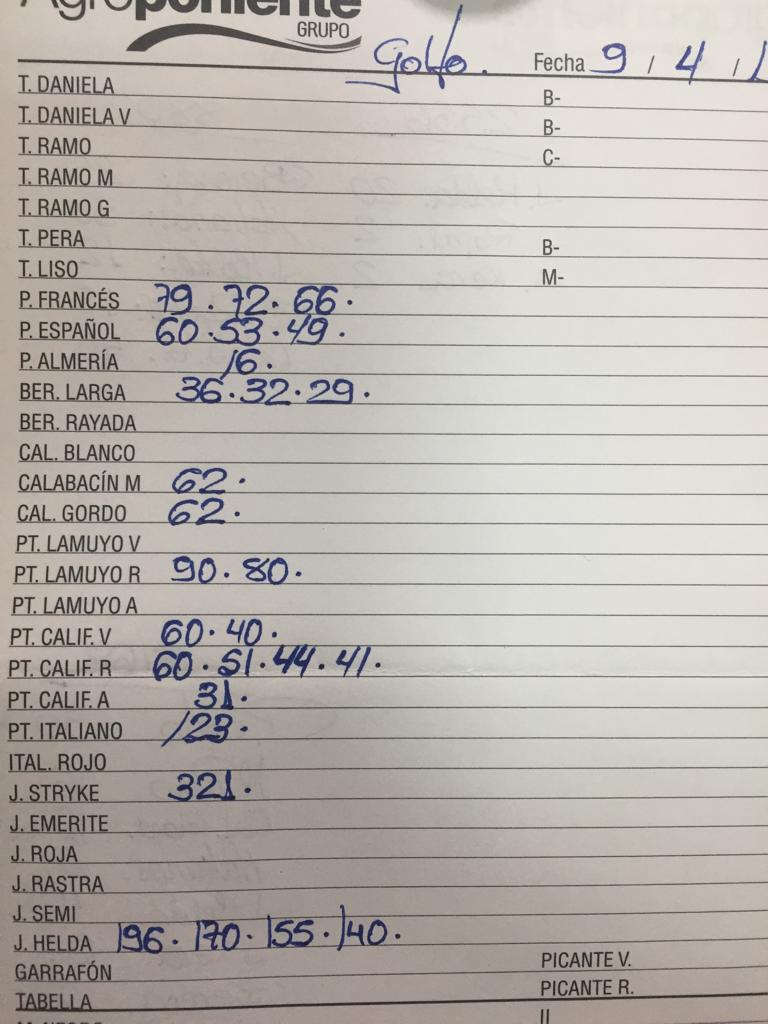 Agroponiente
GRUPO
Golfo. Fecha 9 / 4 /
T. DANIELA B-
T. DANIELA V B-
T. RAMO C-
T. RAMO M
T. RAMO G
T. PERA B-
T. LISO M-
P. FRANCÉS 79. 72. 66.
P. ESPAÑOL 60.53.49.
P. ALMERÍA 16.
BER. LARGA 36.32.29.
BER. RAYADA
CAL. BLANCO
CALABACÍN M 62.
CAL. GORDO 62.
PT. LAMUYO V
PT. LAMUYO R 90. 80.
PT. LAMUYO A
PT. CALIF. V 60. 40.
PT. CALIF. R 60. 51. 44. 41.
PT. CALIF. A 31.
PT. ITALIANO 123.
ITAL. ROJO
J. STRYKE 321.
J. EMERITE
J. ROJA
J. RASTRA
J. SEMI
J. HELDA 196. 170. 155. 140.
GARRAFÓN PICANTE V.
TABELLA PICANTE R.